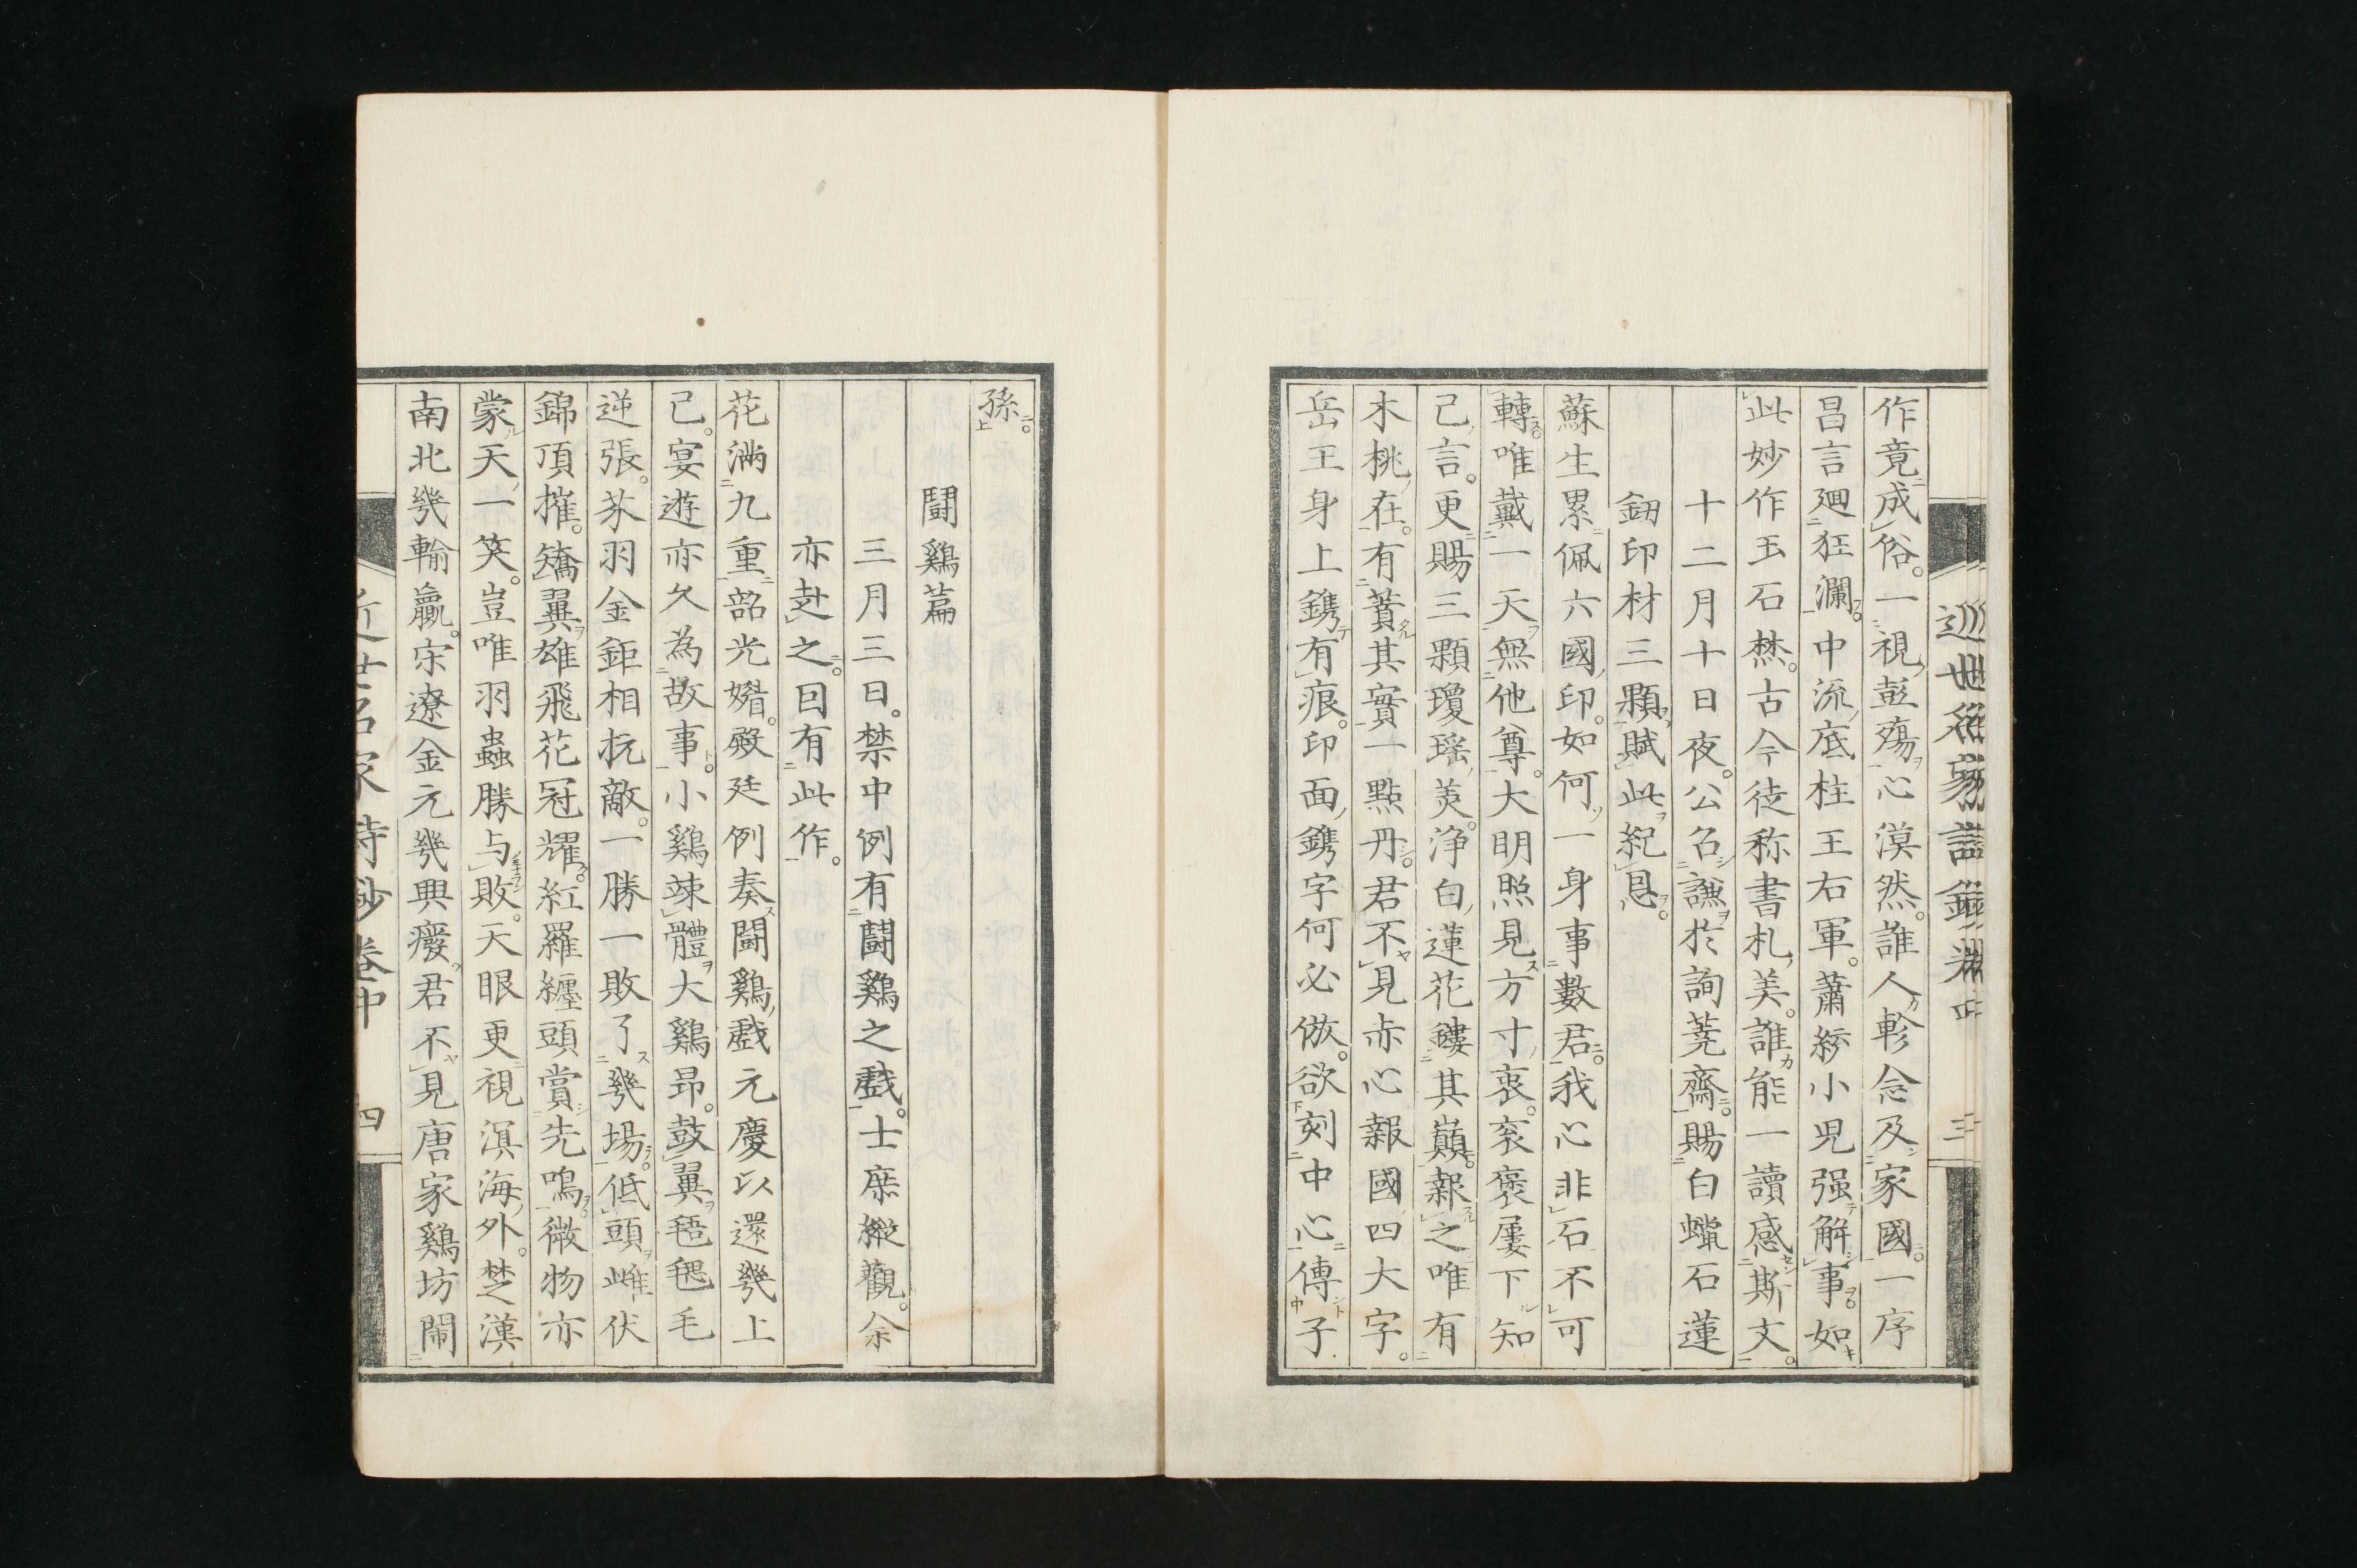 作竟成俗。一視彭殤心漠然。誰人軫念及家國。一序
昌言廻狂瀾。中流底柱王右軍。蕭綜小児强解事。如
此妙作玉石焚。古今徒称書札美。誰能一讀感斯文。
十二月十日夜。公召讌於詢蕘齋。賜白蠟石蓮
鈕印材三顆賦此紀恩。
蘇生累佩六國印。如何一身事數君。我心非石不可
轉。唯戴一天無他尊。大明照見方寸衷。袞褒屢下知
己言。更賜三顆瓊瑶美。浄白蓮花鏤其巓。報之唯有
木桃在。有蕡其實一點丹。君不見赤心報國四大字。
岳王身上鐫有痕。印面鐫字何必倣。欲刻中心傳子
孫。
鬪鷄篇
三月三日。禁中例有鬪鷄之戲。士庶縱觀。余
亦赴之。因有此作。
花滿九重韶光媘。殿廷例奏鬪鷄戲元慶以還幾上
己。宴遊亦久為故事。小鷄竦體大鷄昂。鼓翼毰毸毛
逆張。芥羽金鉅相抗敵。一勝一敗了幾場。低頭雌伏
錦頂摧。矯翼雄飛花冠耀。紅羅纏頭賞先鳴。微物亦
蒙天一笑。豈唯羽蟲勝与敗。天眼更視溟海外。楚漢
南北幾輸贏。宋遼金元幾興癈。君不見唐家鷄坊鬧
近世名家詩鈔 巻中 四